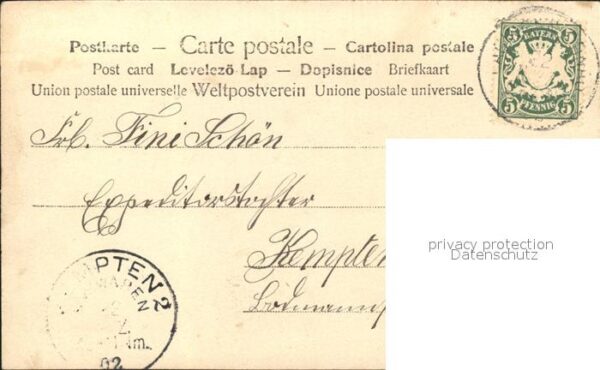 Postkarte – Carte postale – Cartolina postale
Post card Levelező Lap – Dopisnice Briefkaart
Union postale universelle Weltpostverein Unione postale universale
5 BAYERN 5
5 PFENNIG 5
Frl. Fini Schön
Expeditorstochter
Kempten
privacy protection
Datenschutz
KEMPTEN 2
02